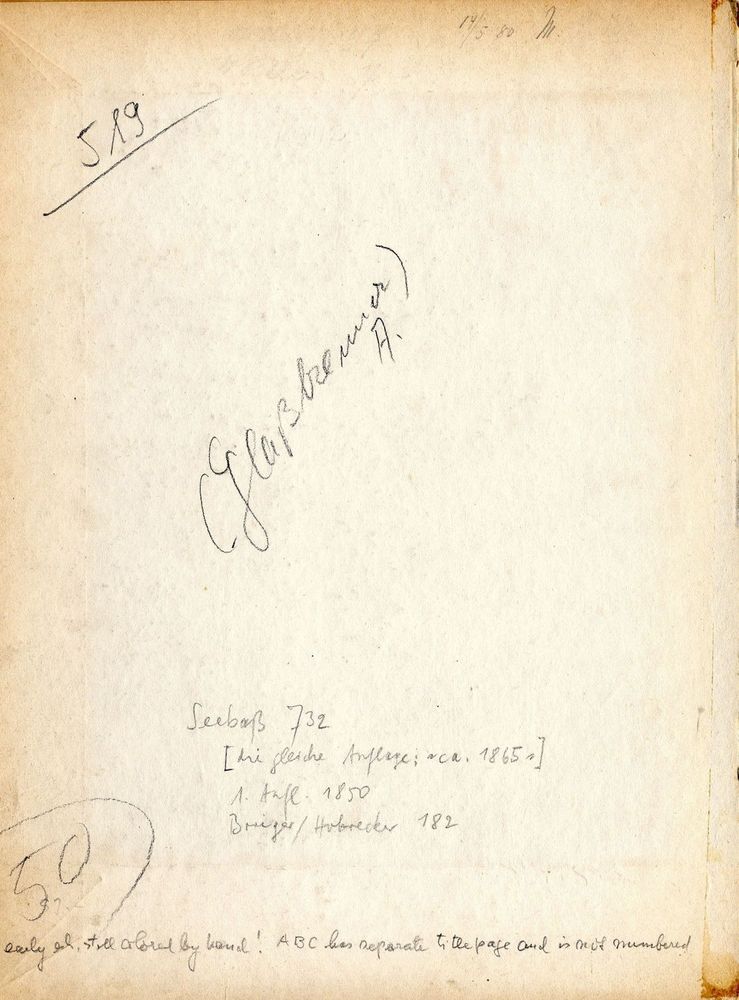 14/5 80 M.
519
(Glaßbrenner)
A.
Seebaß 732
[die gleiche Auflage; "ca. 1865"]
1. Aufl. 1850
Brüger/Hobrecker 182
50
early ed. still colored by hand! ABC has separate title page and is not numbered